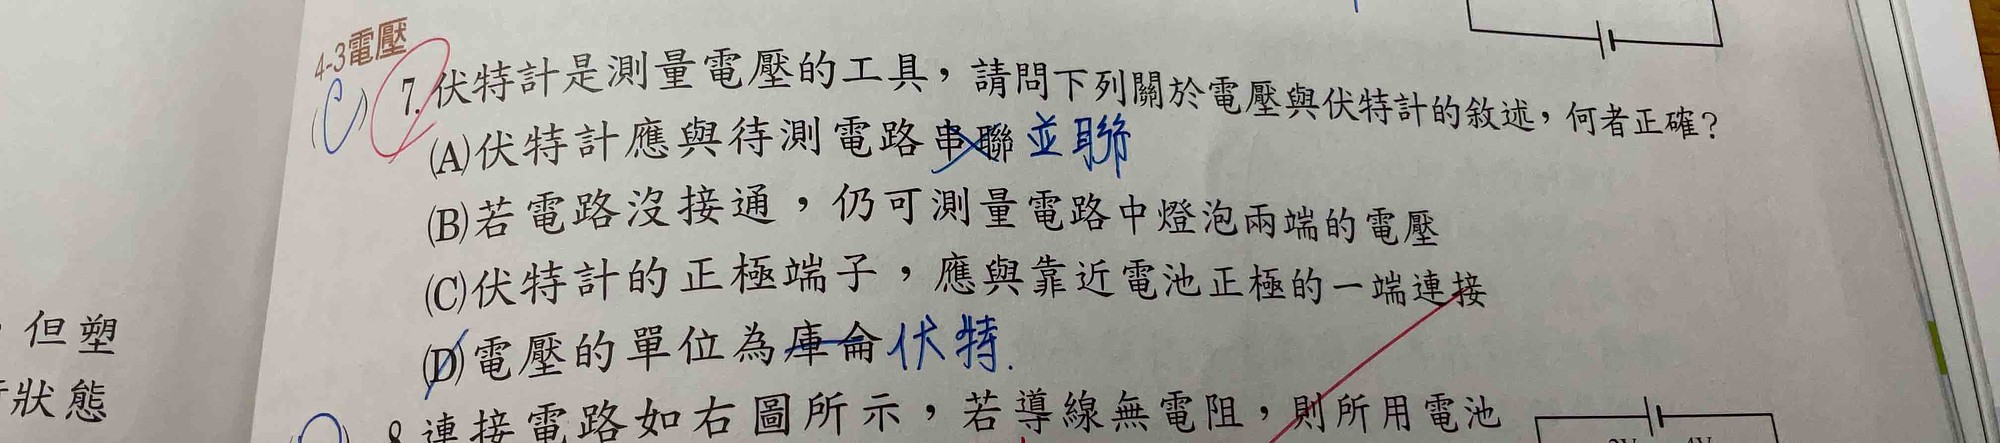 4-3電壓
(C) 7.伏特計是測量電壓的工具，請問下列關於電壓與伏特計的敘述，何者正確？
(A)伏特計應與待測電路串聯 並聯
(B)若電路沒接通，仍可測量電路中燈泡兩端的電壓
(C)伏特計的正極端子，應與靠近電池正極的一端連接
(D)電壓的單位為庫侖 伏特.
8.連接電路如右圖所示，若導線無電阻，則所用電池
，但塑
狀態